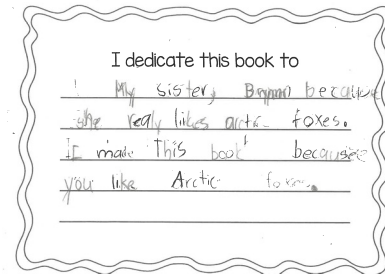 I dedicate this book to
My sister, because
she realy likes arctic foxes.
I made this book because
you like Arctic foxes.